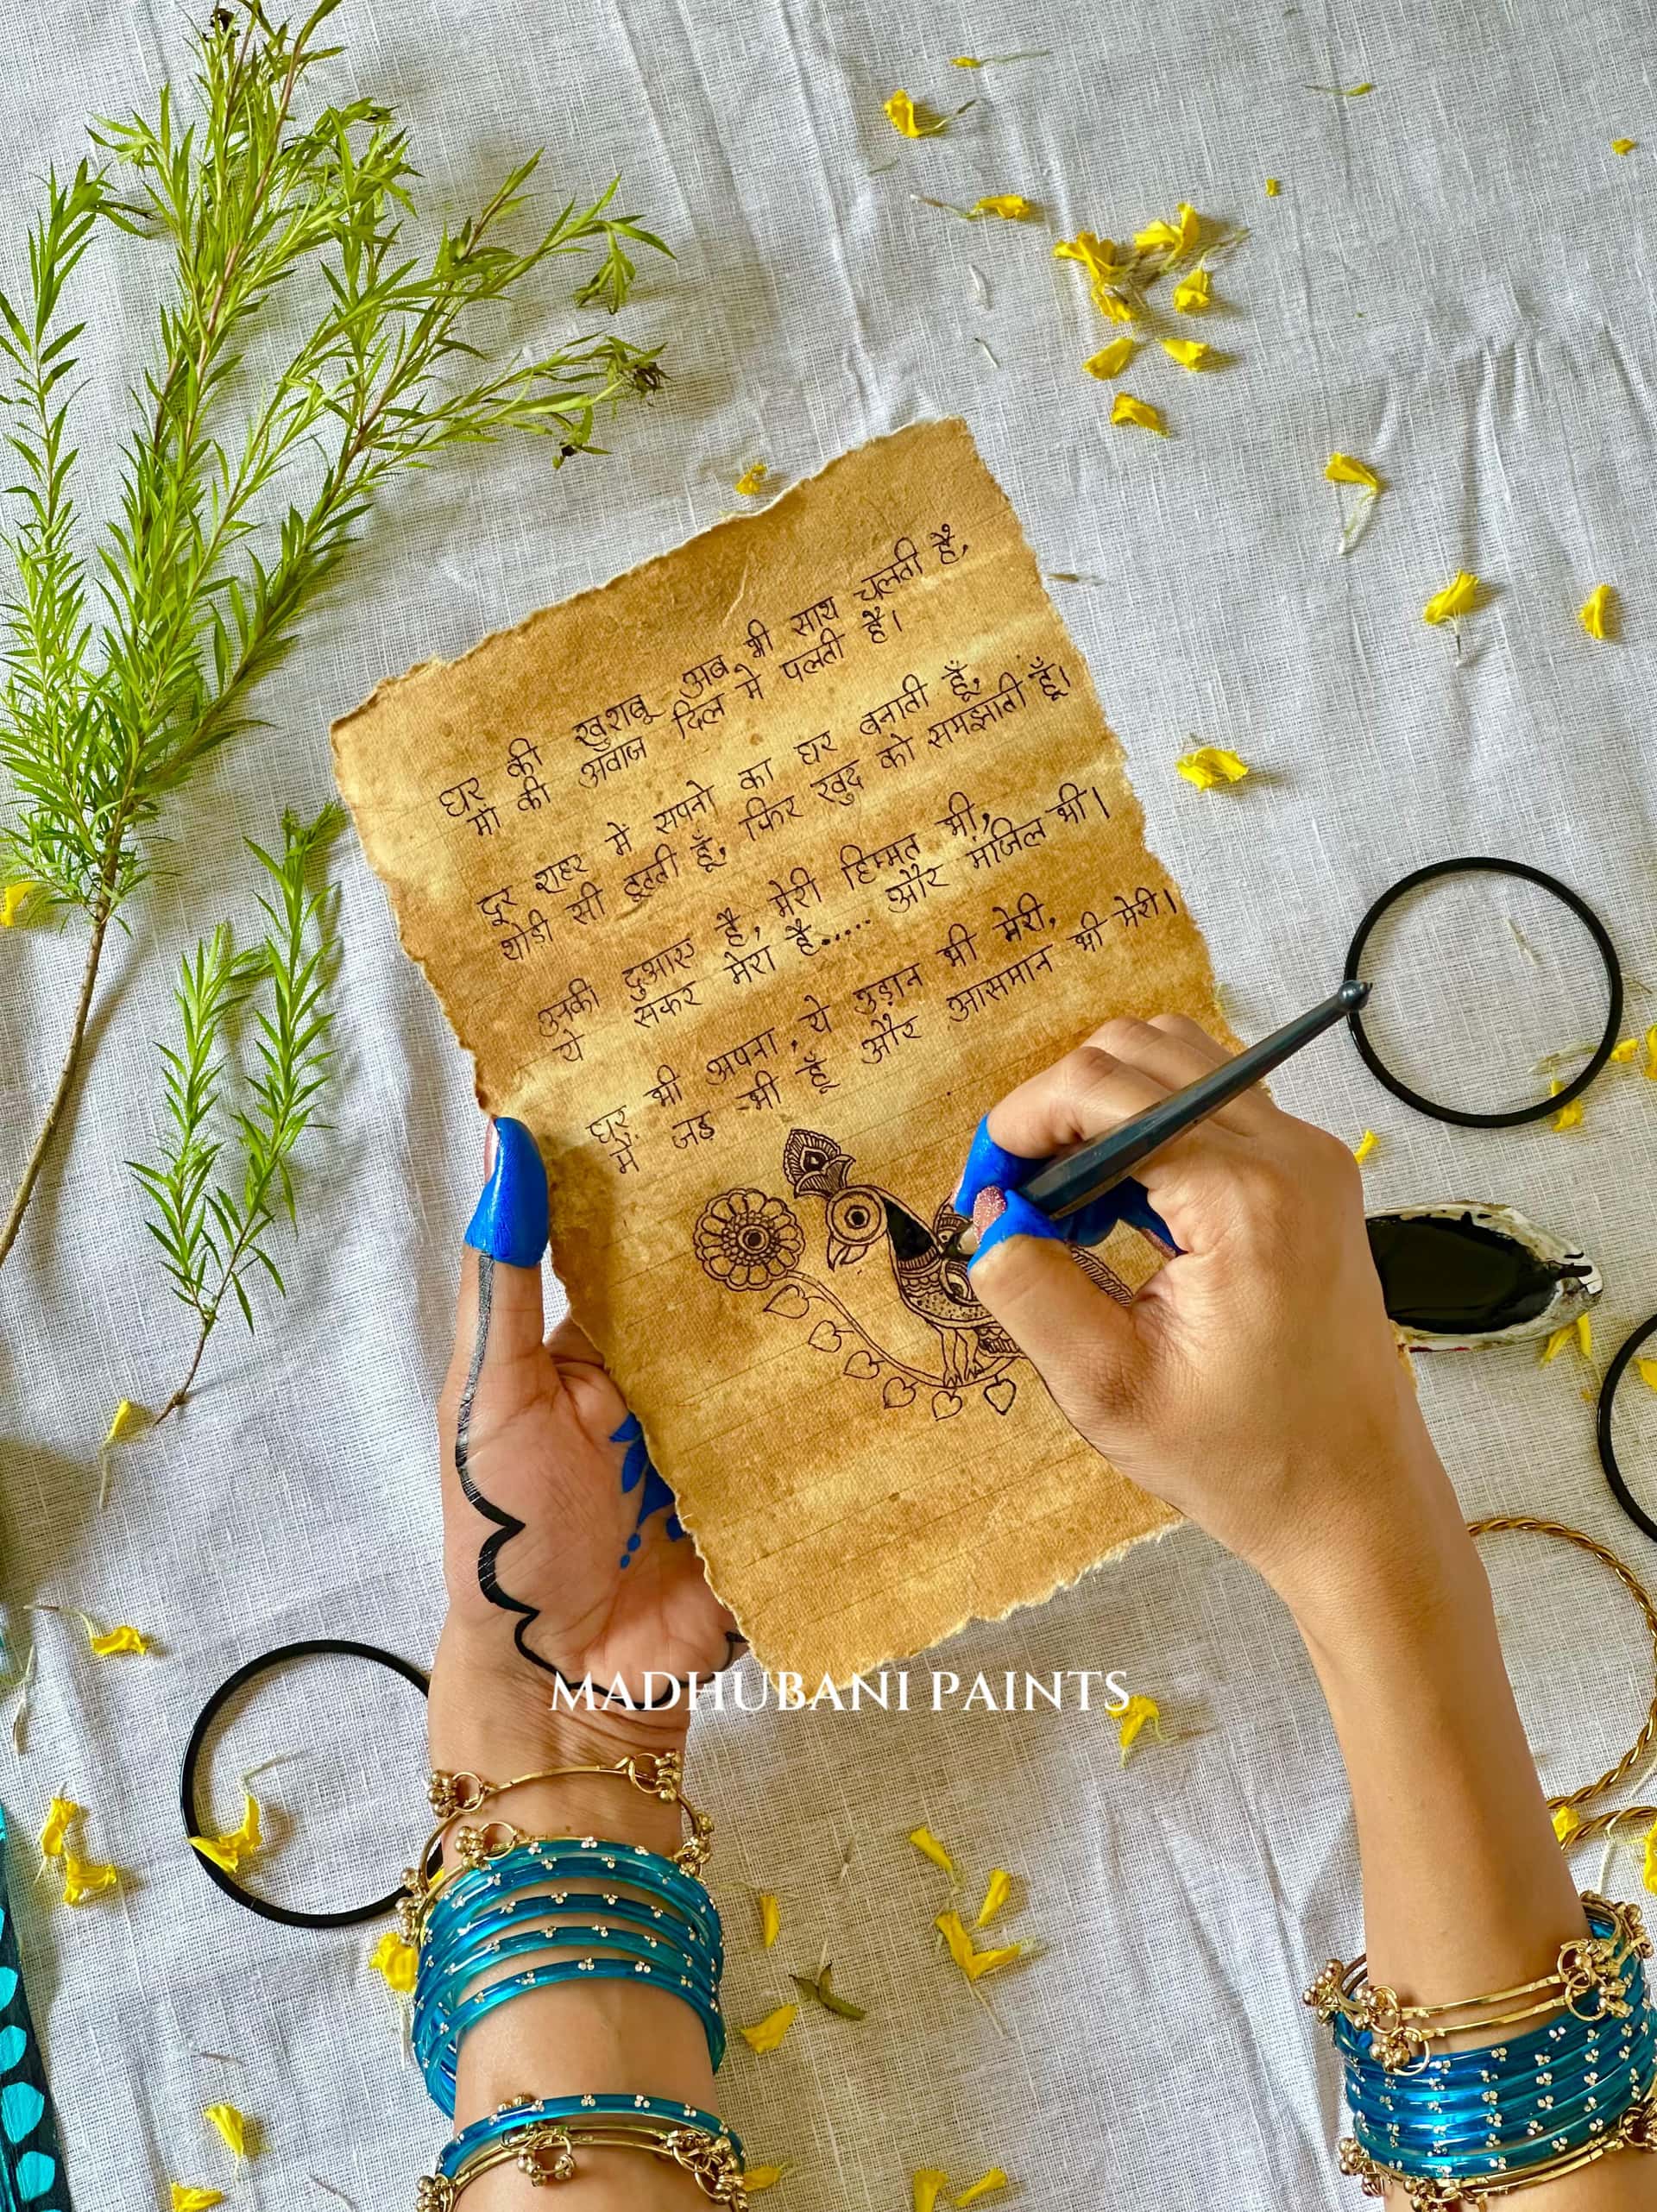 घर की खुशबू अब भी साथ चलती है,
माँ की अवाज दिल मे पलती है।
दूर शहर में सपनो का घर बनाती हूँ,
थोडी सी टूटती हूँ, फिर खुद को समझाती हूँ।
उनकी दुआए है, मेरी हिम्मत भी,
ये सफर मेरा है..... और मंजिल भी।
घर भी अपना, ये उड़ान भी मेरी,
मैं जड भी हूँ और आसमान भी मेरी।
MADHUBANI PAINTS